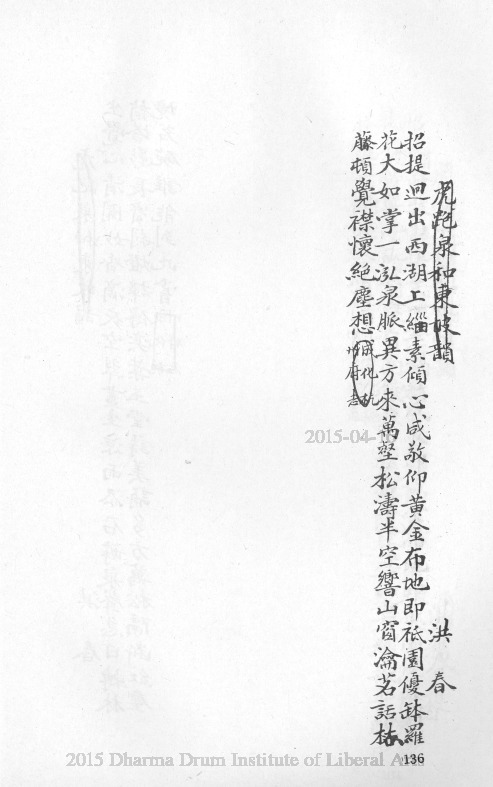 虎跑泉和東坡韻 洪春
招提迥出西湖上緇素傾心咸敬仰黃金布地即祇園優鉢羅
花大如掌一泓泉脈異方來萬壑松濤半空響山窗瀹茗話枯
藤頓覺襟懷絕塵想成化杭州府志
2015-04-1
2015 Dharma Drum Institute of Liberal A
136